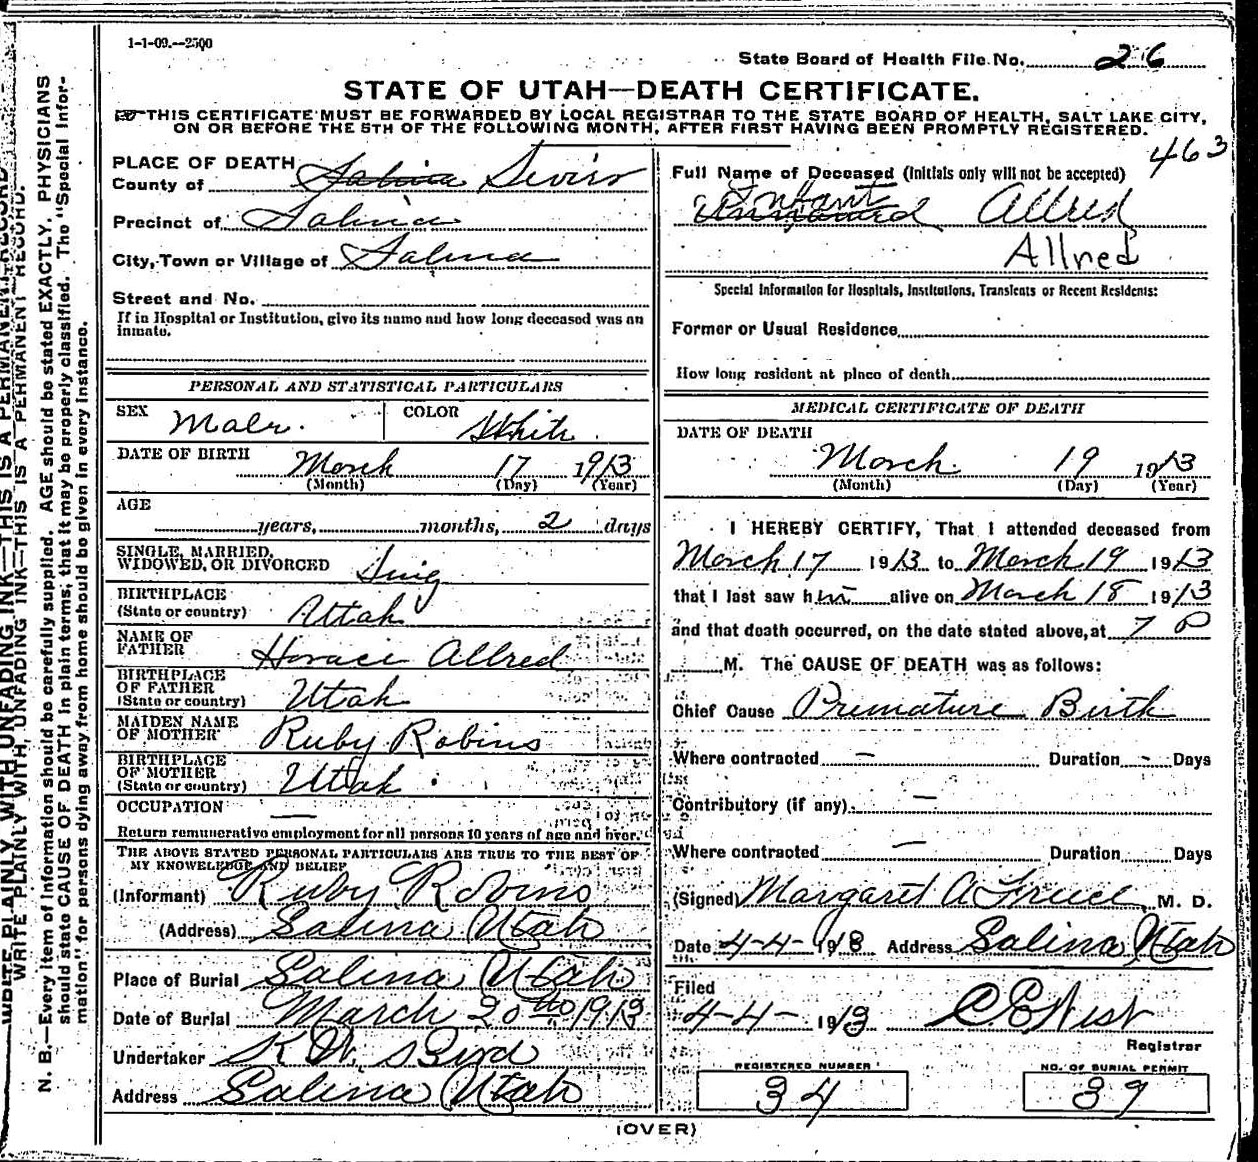 1-1-09.--2500
State Board of Health File No. 26
STATE OF UTAH—DEATH CERTIFICATE.
THIS CERTIFICATE MUST BE FORWARDED BY LOCAL REGISTRAR TO THE STATE BOARD OF HEALTH, SALT LAKE CITY,
ON OR BEFORE THE 5TH OF THE FOLLOWING MONTH, AFTER FIRST HAVING BEEN PROMPTLY REGISTERED.
463
PLACE OF DEATH
County of Salina Sevier
Precinct of Salina
City, Town or Village of Salina
Street and No.
If in Hospital or Institution, give its name and how long deceased was an
inmate.
PERSONAL AND STATISTICAL PARTICULARS
SEX Male. COLOR White
DATE OF BIRTH March 17 1913
(Month) (Day) (Year)
AGE
years, months, 2 days
SINGLE, MARRIED,
WIDOWED, OR DIVORCED Sing
BIRTHPLACE
(State or country) Utah
NAME OF
FATHER Horace Allred
BIRTHPLACE
OF FATHER
(State or country) Utah
MAIDEN NAME
OF MOTHER Ruby Robins
BIRTHPLACE
OF MOTHER
(State or country) Utah
OCCUPATION —
Return remunerative employment for all persons 10 years of age and over.
THE ABOVE STATED PERSONAL PARTICULARS ARE TRUE TO THE BEST OF
MY KNOWELEDGE AND BELIEF
(Informant) Ruby Robins
(Address) Salina Utah
Place of Burial Salina Utah
Date of Burial March 20th 1913
Undertaker K W. Bird
Address Salina Utah
Full Name of Deceased (Initials only will not be accepted)
Infant
Unnamed Allred
Allred
Special Information for Hospitals, Institutions, Transients or Recent Residents:
Former or Usual Residence
How long resident at place of death
MEDICAL CERTIFICATE OF DEATH
DATE OF DEATH
March 19 1913
(Month) (Day) (Year)
I HEREBY CERTIFY, That I attended deceased from
March 17 1913 to March 19 1913
that I last saw him alive on March 18 1913
and that death occurred, on the date stated above, at 7 P
M. The CAUSE OF DEATH was as follows:
Chief Cause Premature Birth
Where contracted — Duration - Days
Contributory (if any) —
Where contracted — Duration Days
(Signed) Margaret A M. D.
Date 4-4- 1913 Address Salina Utah
Filed
4-4- 1913 C. E. West
Registrar
REGISTERED NUMBER
34
NO. OF BURIAL PERMIT
39
(OVER)
WRITE PLAINLY WITH UNFADING INK—THIS IS A PERMANENT RECORD.
WRITE PLAINLY WITH, UNFADING INK—THIS IS A PERMANENT RECORD.
N. B.—Every item of information should be carefully supplied. AGE should be stated EXACTLY. PHYSICIANS
should state CAUSE OF DEATH in plain terms, that it may be properly classified. The "Special Infor-
mation" for persons dying away from home should be given in every instance.